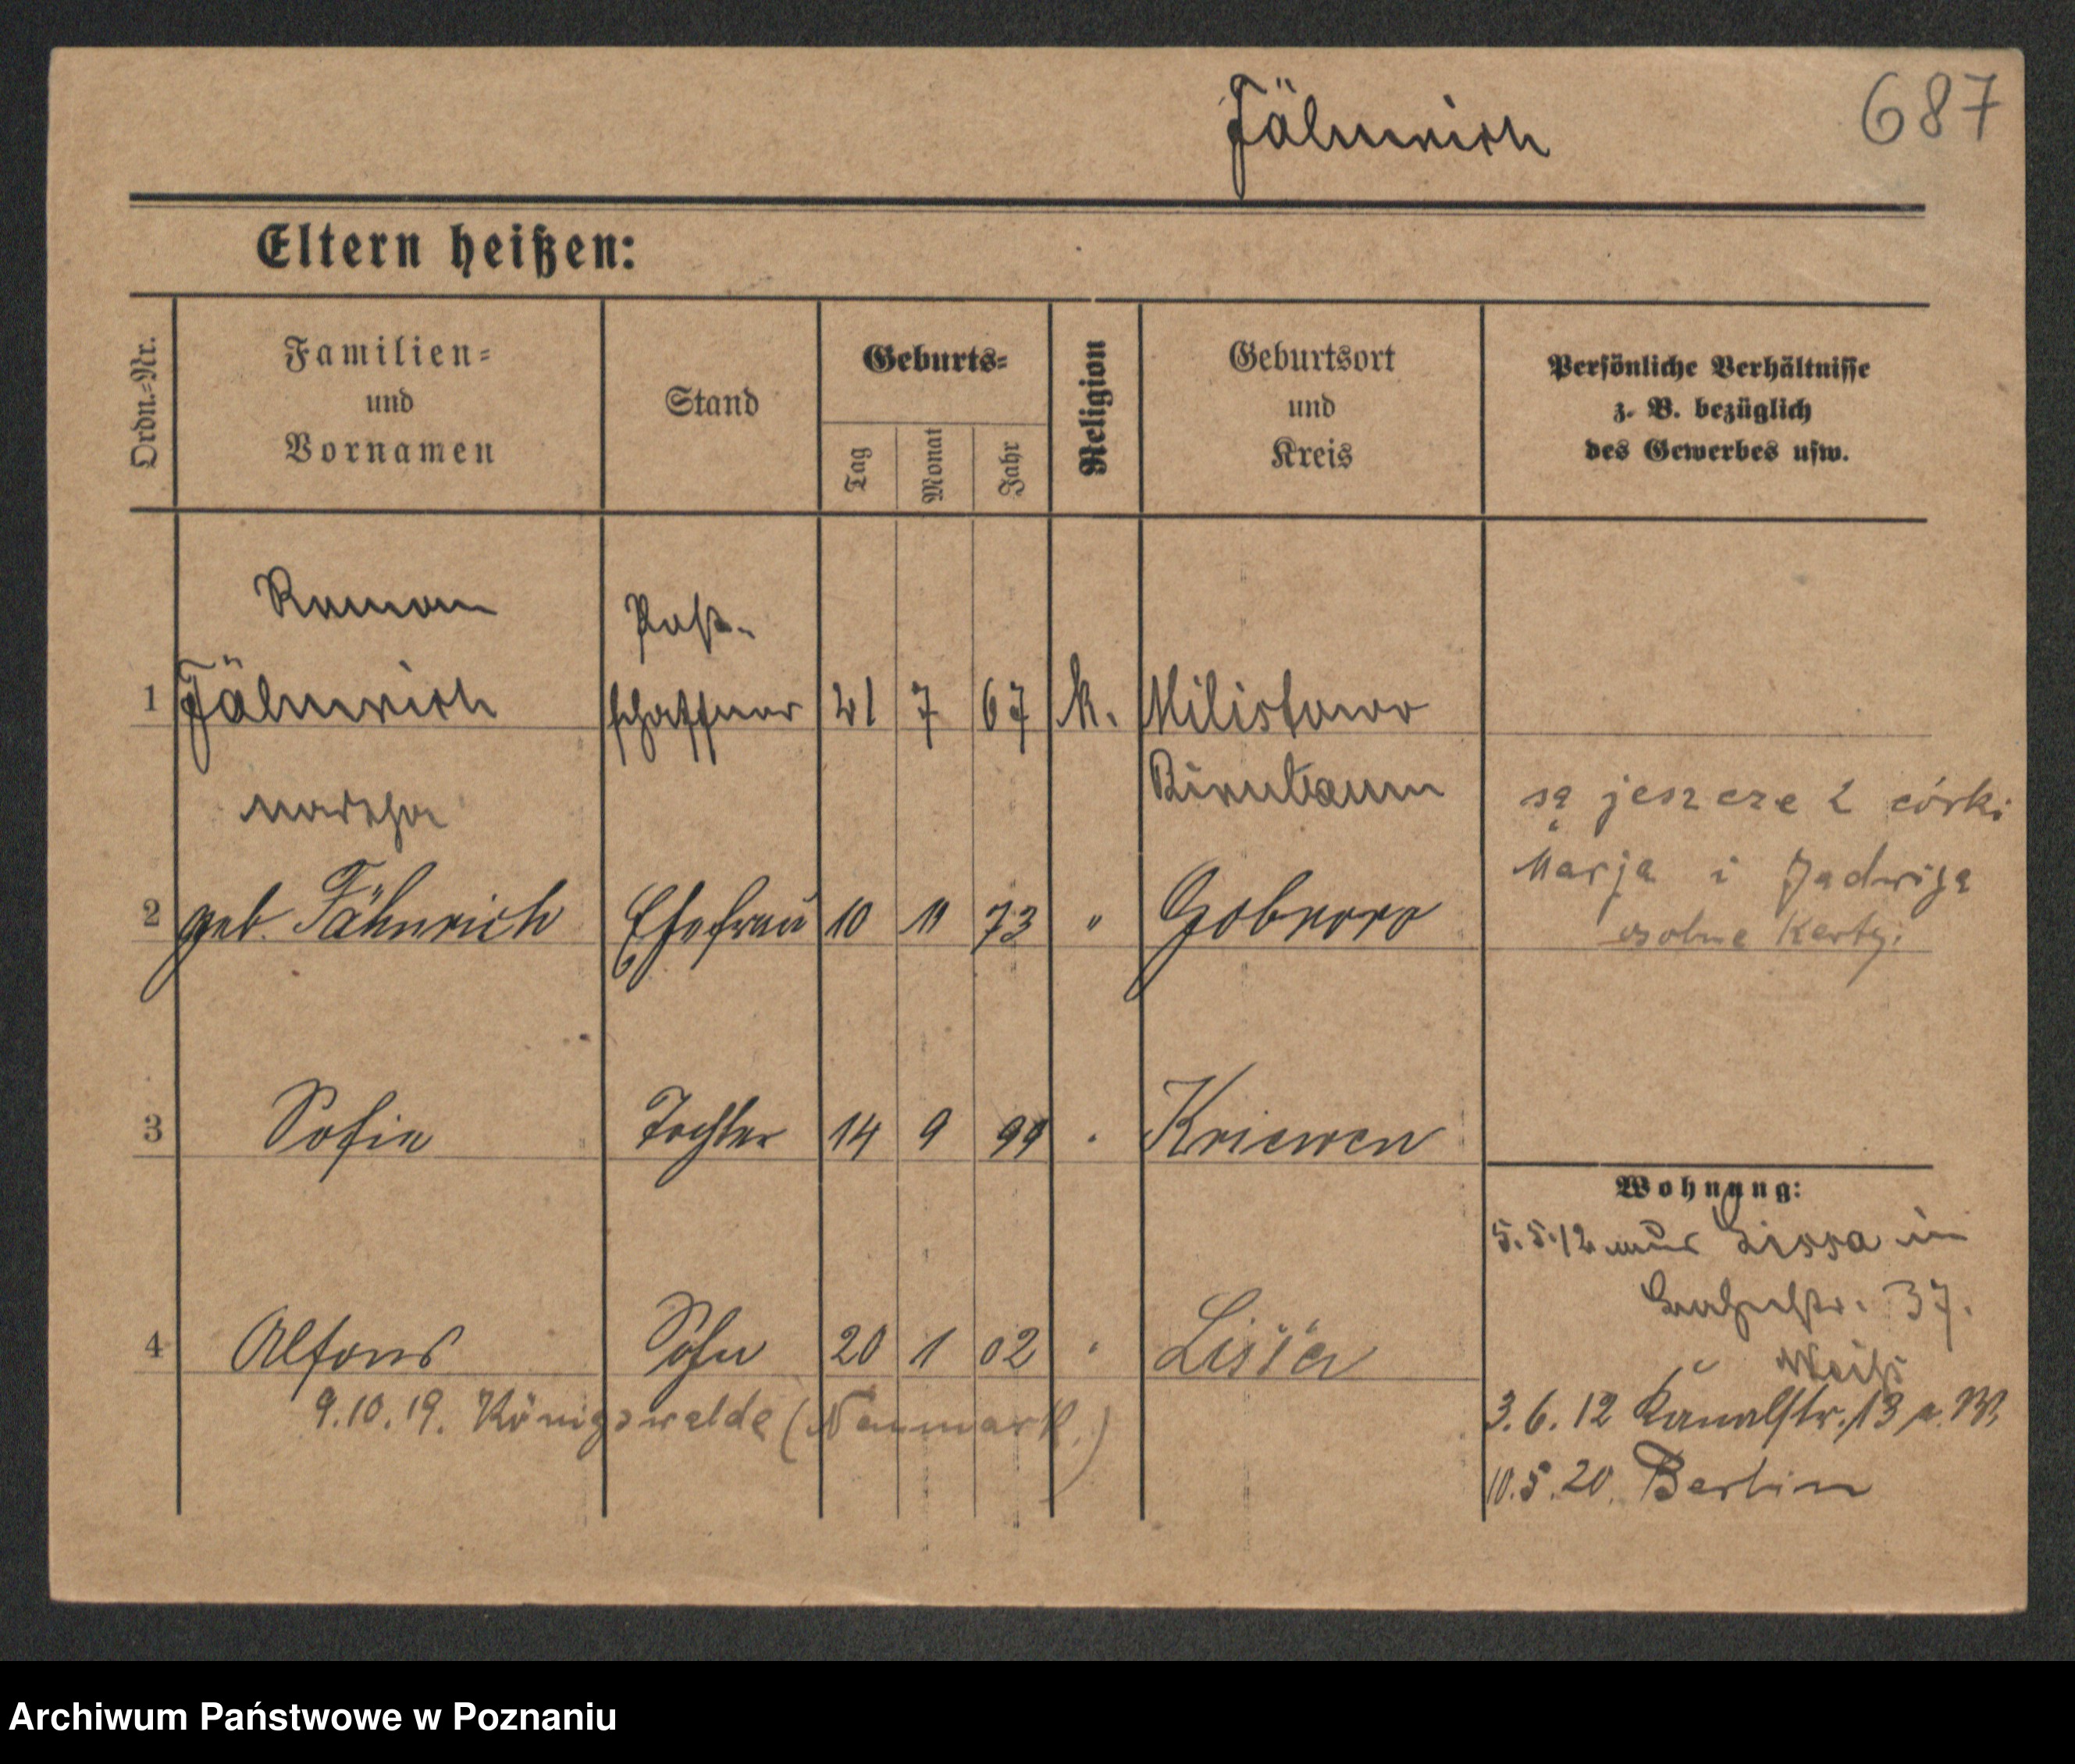 Fähnrich
687
Eltern heißen:
Ordn.-Nr.
Familien-
und
Vornamen
Stand
Geburts-
Tag
Monat
Jahr
Religion
Geburtsort
und
Kreis
Persönliche Verhältnisse
z. B. bezüglich
des Gewerbes usw.
Roman
Post-
1 Fähnrich schaffner 21 7 67 k. Milistowo
Birnbaum
Martha
są jeszcze 2 córki
Marja i Jadwiga
osobne karty.
2 geb. Fähnrich Ehefrau 10 11 73 "
3 Sofie Tochter 14 9 99 " Kriewen
Wohnung:
5.5.12 aus Lissa in
37.
4 Alfons Sohn 20 1 02 " Lissa
9.10.19. Königswalde (Neumark.)
3.6.12 Kanalstr. 13
10.5.20. Berlin
Archiwum Państwowe w Poznaniu